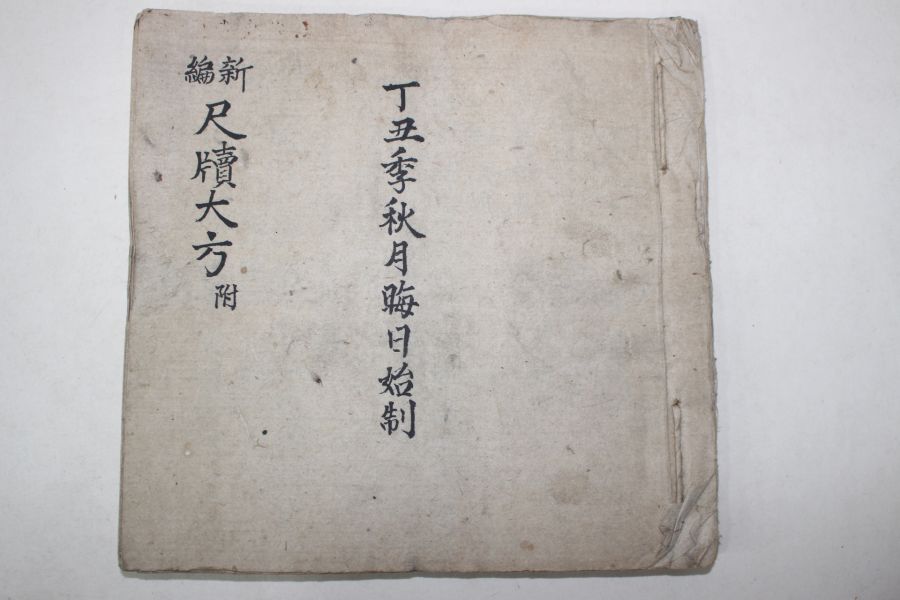 丁丑季秋月晦日始制
新編
尺牘大方
附